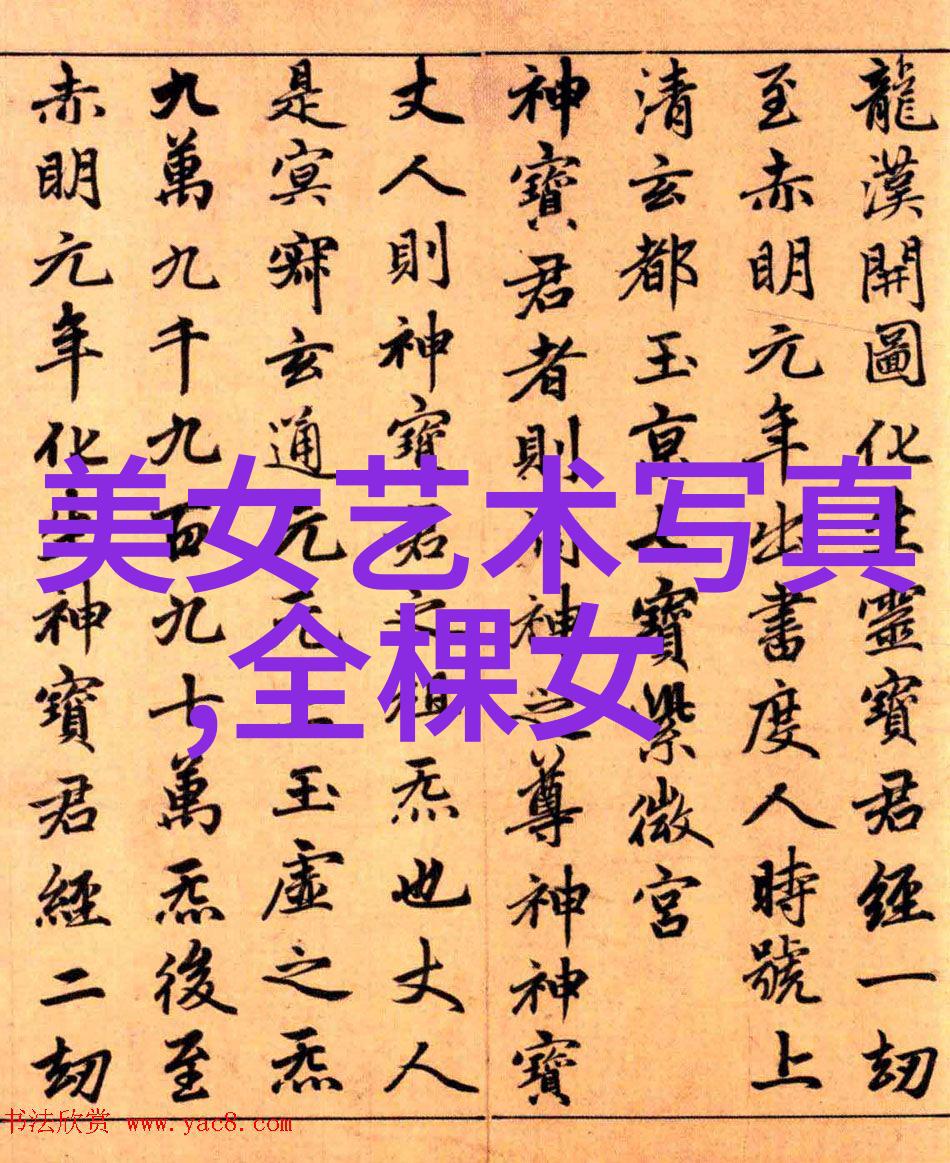 龍漢開圖化生靈寶君經一劫
至赤明元年出書度人時號上
清玄都玉京上寶紫微宮
神寶君者則洞神之尊神神寶
丈人則神寶君之祖炁也丈人
是冥寂玄通元无上玉虛之炁
九萬九千九百九十萬炁後至
赤明元年化生神寶君經二劫
美女艺术写真
,全棵女
书法欣赏 www.yac8.com